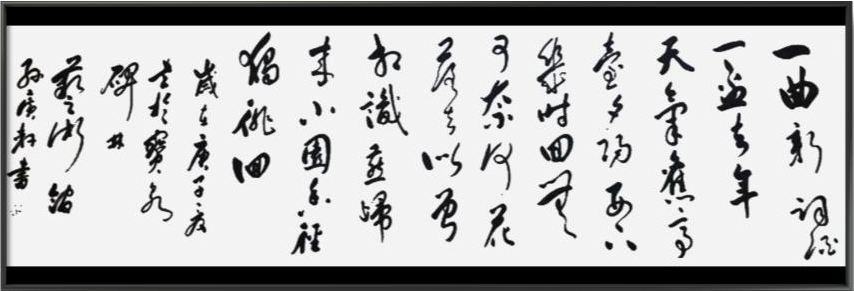 一曲新詞酒
一盃去年
天氣舊亭
臺夕陽西下
幾時回無
可奈何花
落去似曾
相識燕歸
來小園香徑
獨徘徊
歲在庚子夏
書於寶
碑林
藝術館
孫廣書